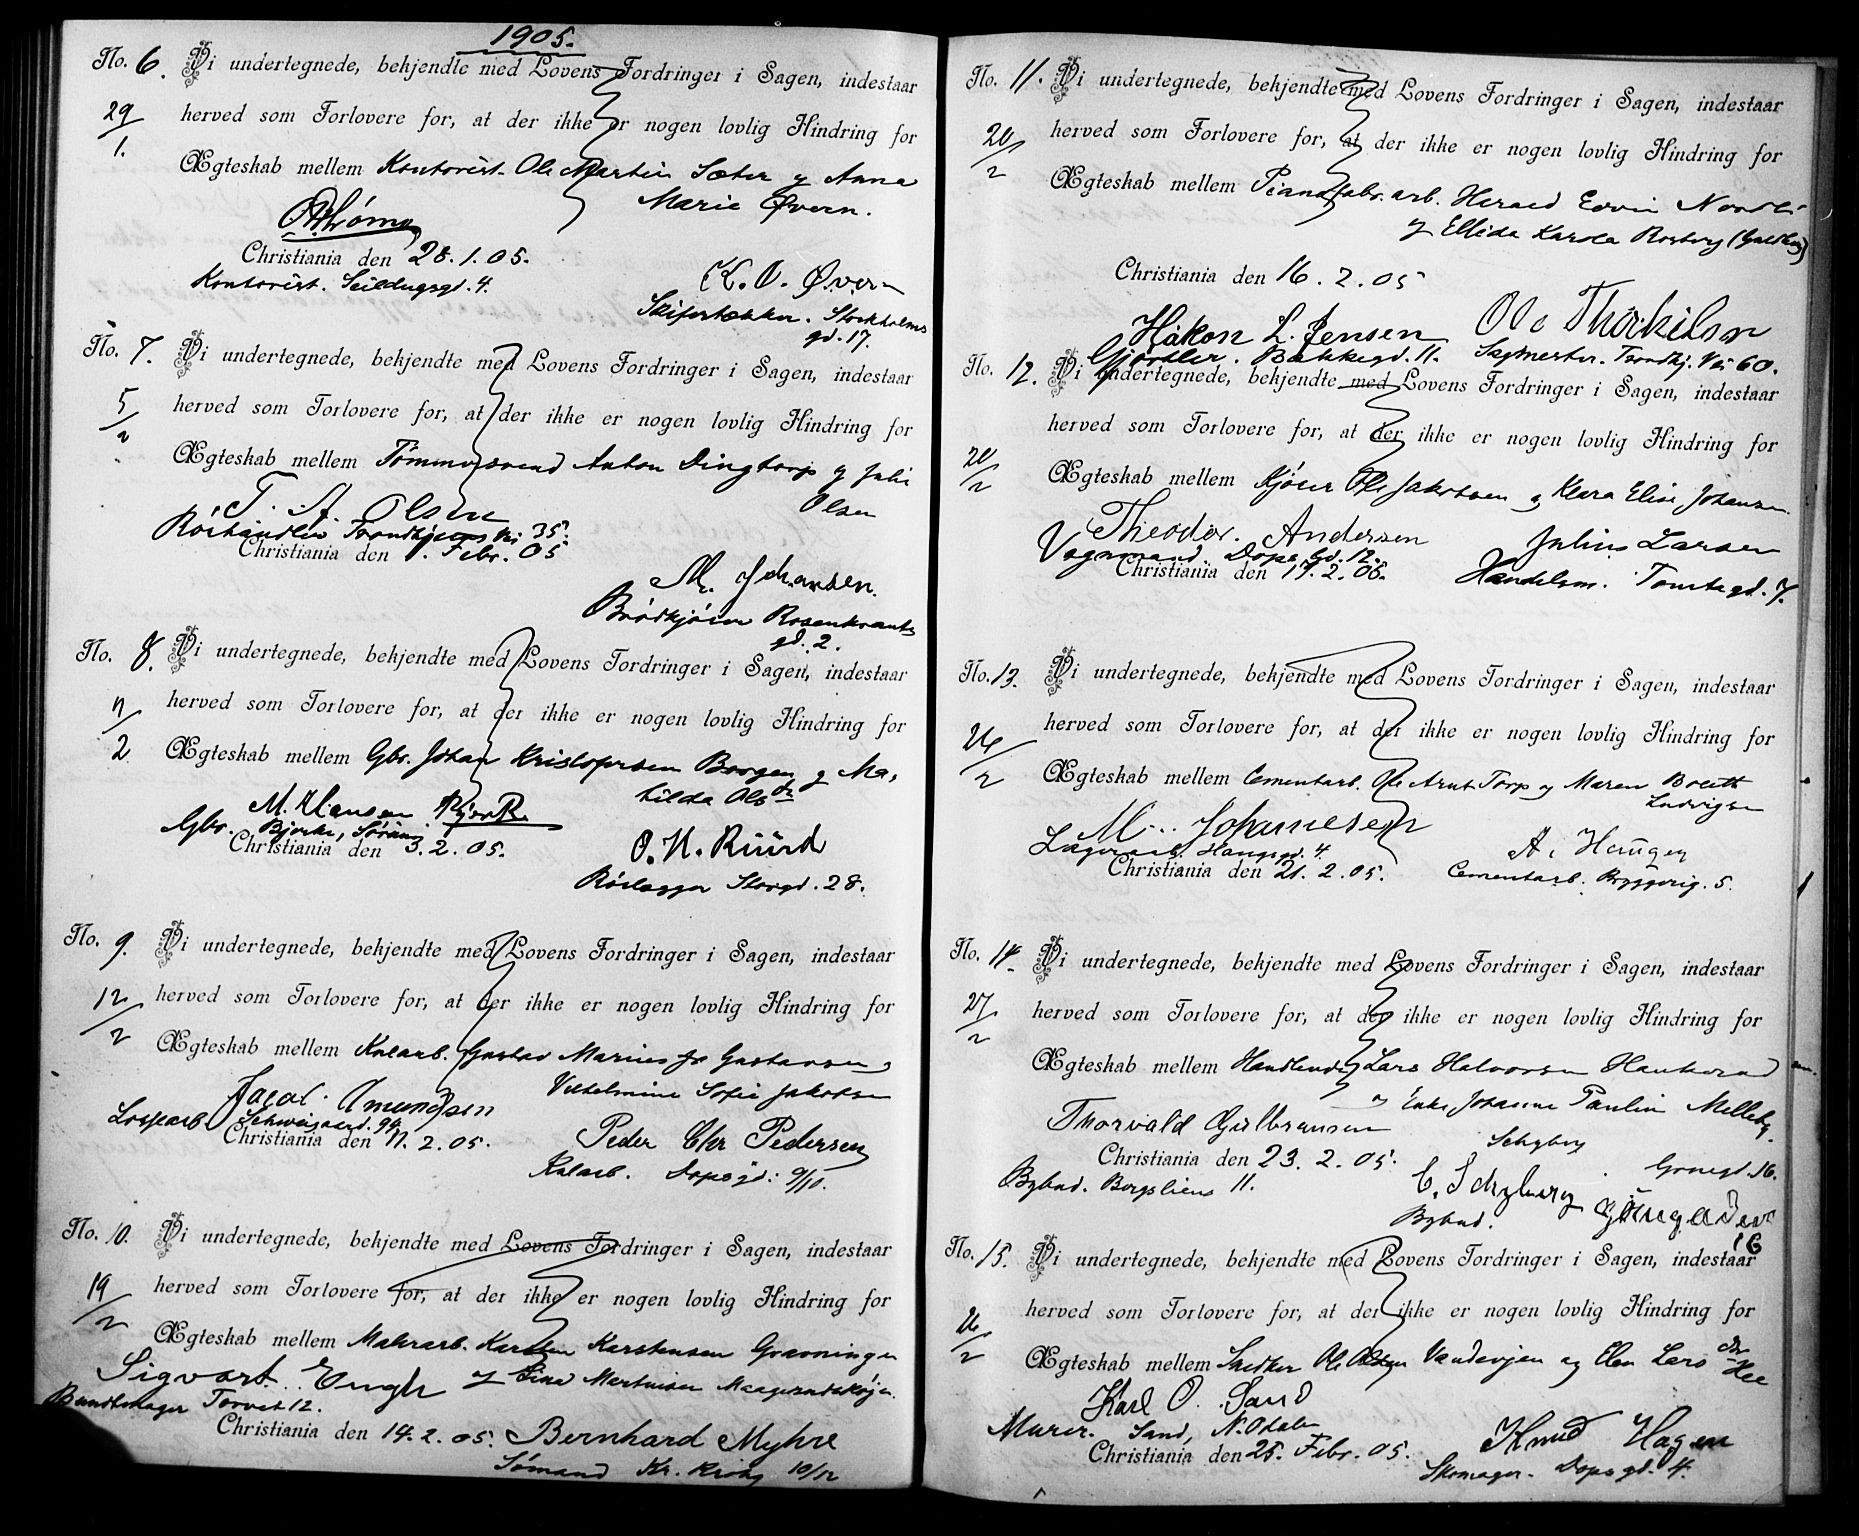 1905.
No. 6. Vi undertegnede, bekjendte med Lovens Fordringer i Sagen, indestaar
29/1. herved som Forlovere for, at der ikke er nogen lovlig Hindring for
Ægteskab mellem Kontorist Ole Martin Sæter og Anna
Marie Øvern.
Christiania den 28.1.05.
Kontorist. Seildugsgd. 4.
K. O. Øvern
Skifertækker. Stockholms
gd. 17.
No. 7. Vi undertegnede, bekjendte med Lovens Fordringer i Sagen, indestaar
5/2 herved som Forlovere for, at der ikke er nogen lovlig Hindring for
Ægteskab mellem Tømmersvend Anton Dingtorp og Julie
Olsen
T. A. Olsen
Rørhandler Trondhjems Vei 35.
Christiania den 1. Febr. 05
M. Johansen.
Brødkjører Rosenkrantz
gd. 2.
No. 8. Vi undertegnede, bekjendte med Lovens Fordringer i Sagen, indestaar
herved som Forlovere for, at der ikke er nogen lovlig Hindring for
2 Ægteskab mellem Gbr. Johan Kristofersen Borgen og Ma-
tilda Olsdr
M. Hansen Bjørke
Gbr. Bjerke, Sørum
Christiania den 3.2.05.
O. N. Ruud
Rørlægger Storgd. 28.
No. 9. Vi undertegnede, bekjendte med Lovens Fordringer i Sagen, indestaar
12/2 herved som Forlovere for, at der ikke er nogen lovlig Hindring for
Ægteskab mellem Kularb. Gustav Marius Gustavsen
Vilhelmine Sofie Jakobsen
Jacob Amundsen
Lossearb. Schweigaardsgd.
Christiania den 11.2.05.
Peder Chr Pedersen
Kularb. Dopsgd. 9/10.
No. 10. Vi undertegnede, bekjendte med Lovens Fordringer i Sagen, indestaar
19/2 herved som Forlovere for, at der ikke er nogen lovlig Hindring for
Ægteskab mellem Malerarb. Karsten Karstensen Grønningen
Sigvart Engh og Lina Martinsen
Bundtmager Torvet 12.
Christiania den 14.2.05. Bernhard Myhre
Sømand Kr. Krohg 10/12
No. 11. Vi undertegnede, bekjendte med Lovens Fordringer i Sagen, indestaar
20/2 herved som Forlovere for, at der ikke er nogen lovlig Hindring for
Ægteskab mellem Pianofabr. arb. Harald Edvin Nordli
og Ellida Karola Rosberg
Christiania den 16.2.05
Håkon L. Jensen Ole Thorkilsen
Gjørtler. Bakkegd. 11. Sagmester. Trondhj. Vei 60.
No. 12. Vi undertegnede, bekjendte med Lovens Fordringer i Sagen, indestaar
herved som Forlovere for, at der ikke er nogen lovlig Hindring for
20/2 Ægteskab mellem Kjører Ole Jakobsen og Klara Elise Johansen
Theodor Andersen Julius Larsen
Vognmand Dops Gd. 12.
Christiania den 17.2.05. Handelsm. Tomtegd. 7.
No. 13. Vi undertegnede, bekjendte med Lovens Fordringer i Sagen, indestaar
26/2 herved som Forlovere for, at der ikke er nogen lovlig Hindring for
Ægteskab mellem Cementarb. Ole Arnt Torp og Maren Boleth
Ludvigsen
M. Johannesen A. Haugen
Lagerarb. Haugsgd. 4.
Christiania den 21.2.05. Cementarb. Bryggerig. 5.
No. 14. Vi undertegnede, bekjendte med Lovens Fordringer i Sagen, indestaar
27/2 herved som Forlovere for, at der ikke er nogen lovlig Hindring for
Ægteskab mellem Handlende Lars Halvorsen Haukerud
og Enke Johanne Paulin Melleby
Thorvald Gulbransen Schyberg
Christiania den 23.2.05. Grønegd. 16.
Bybud. Bergsliens 11. C. Schyberg
Bybud. 16
No. 15. Vi undertegnede, bekjendte med Lovens Fordringer i Sagen, indestaar
26/2 herved som Forlovere for, at der ikke er nogen lovlig Hindring for
Ægteskab mellem Snedker Ole Olsen Vandevjen og Elen Larsdtr
Karl O. Sand
Murer. Sand, N. Odalen Knud Hagen
Christiania den 25. Febr. 05. Skomager. Dopsgd. 4.